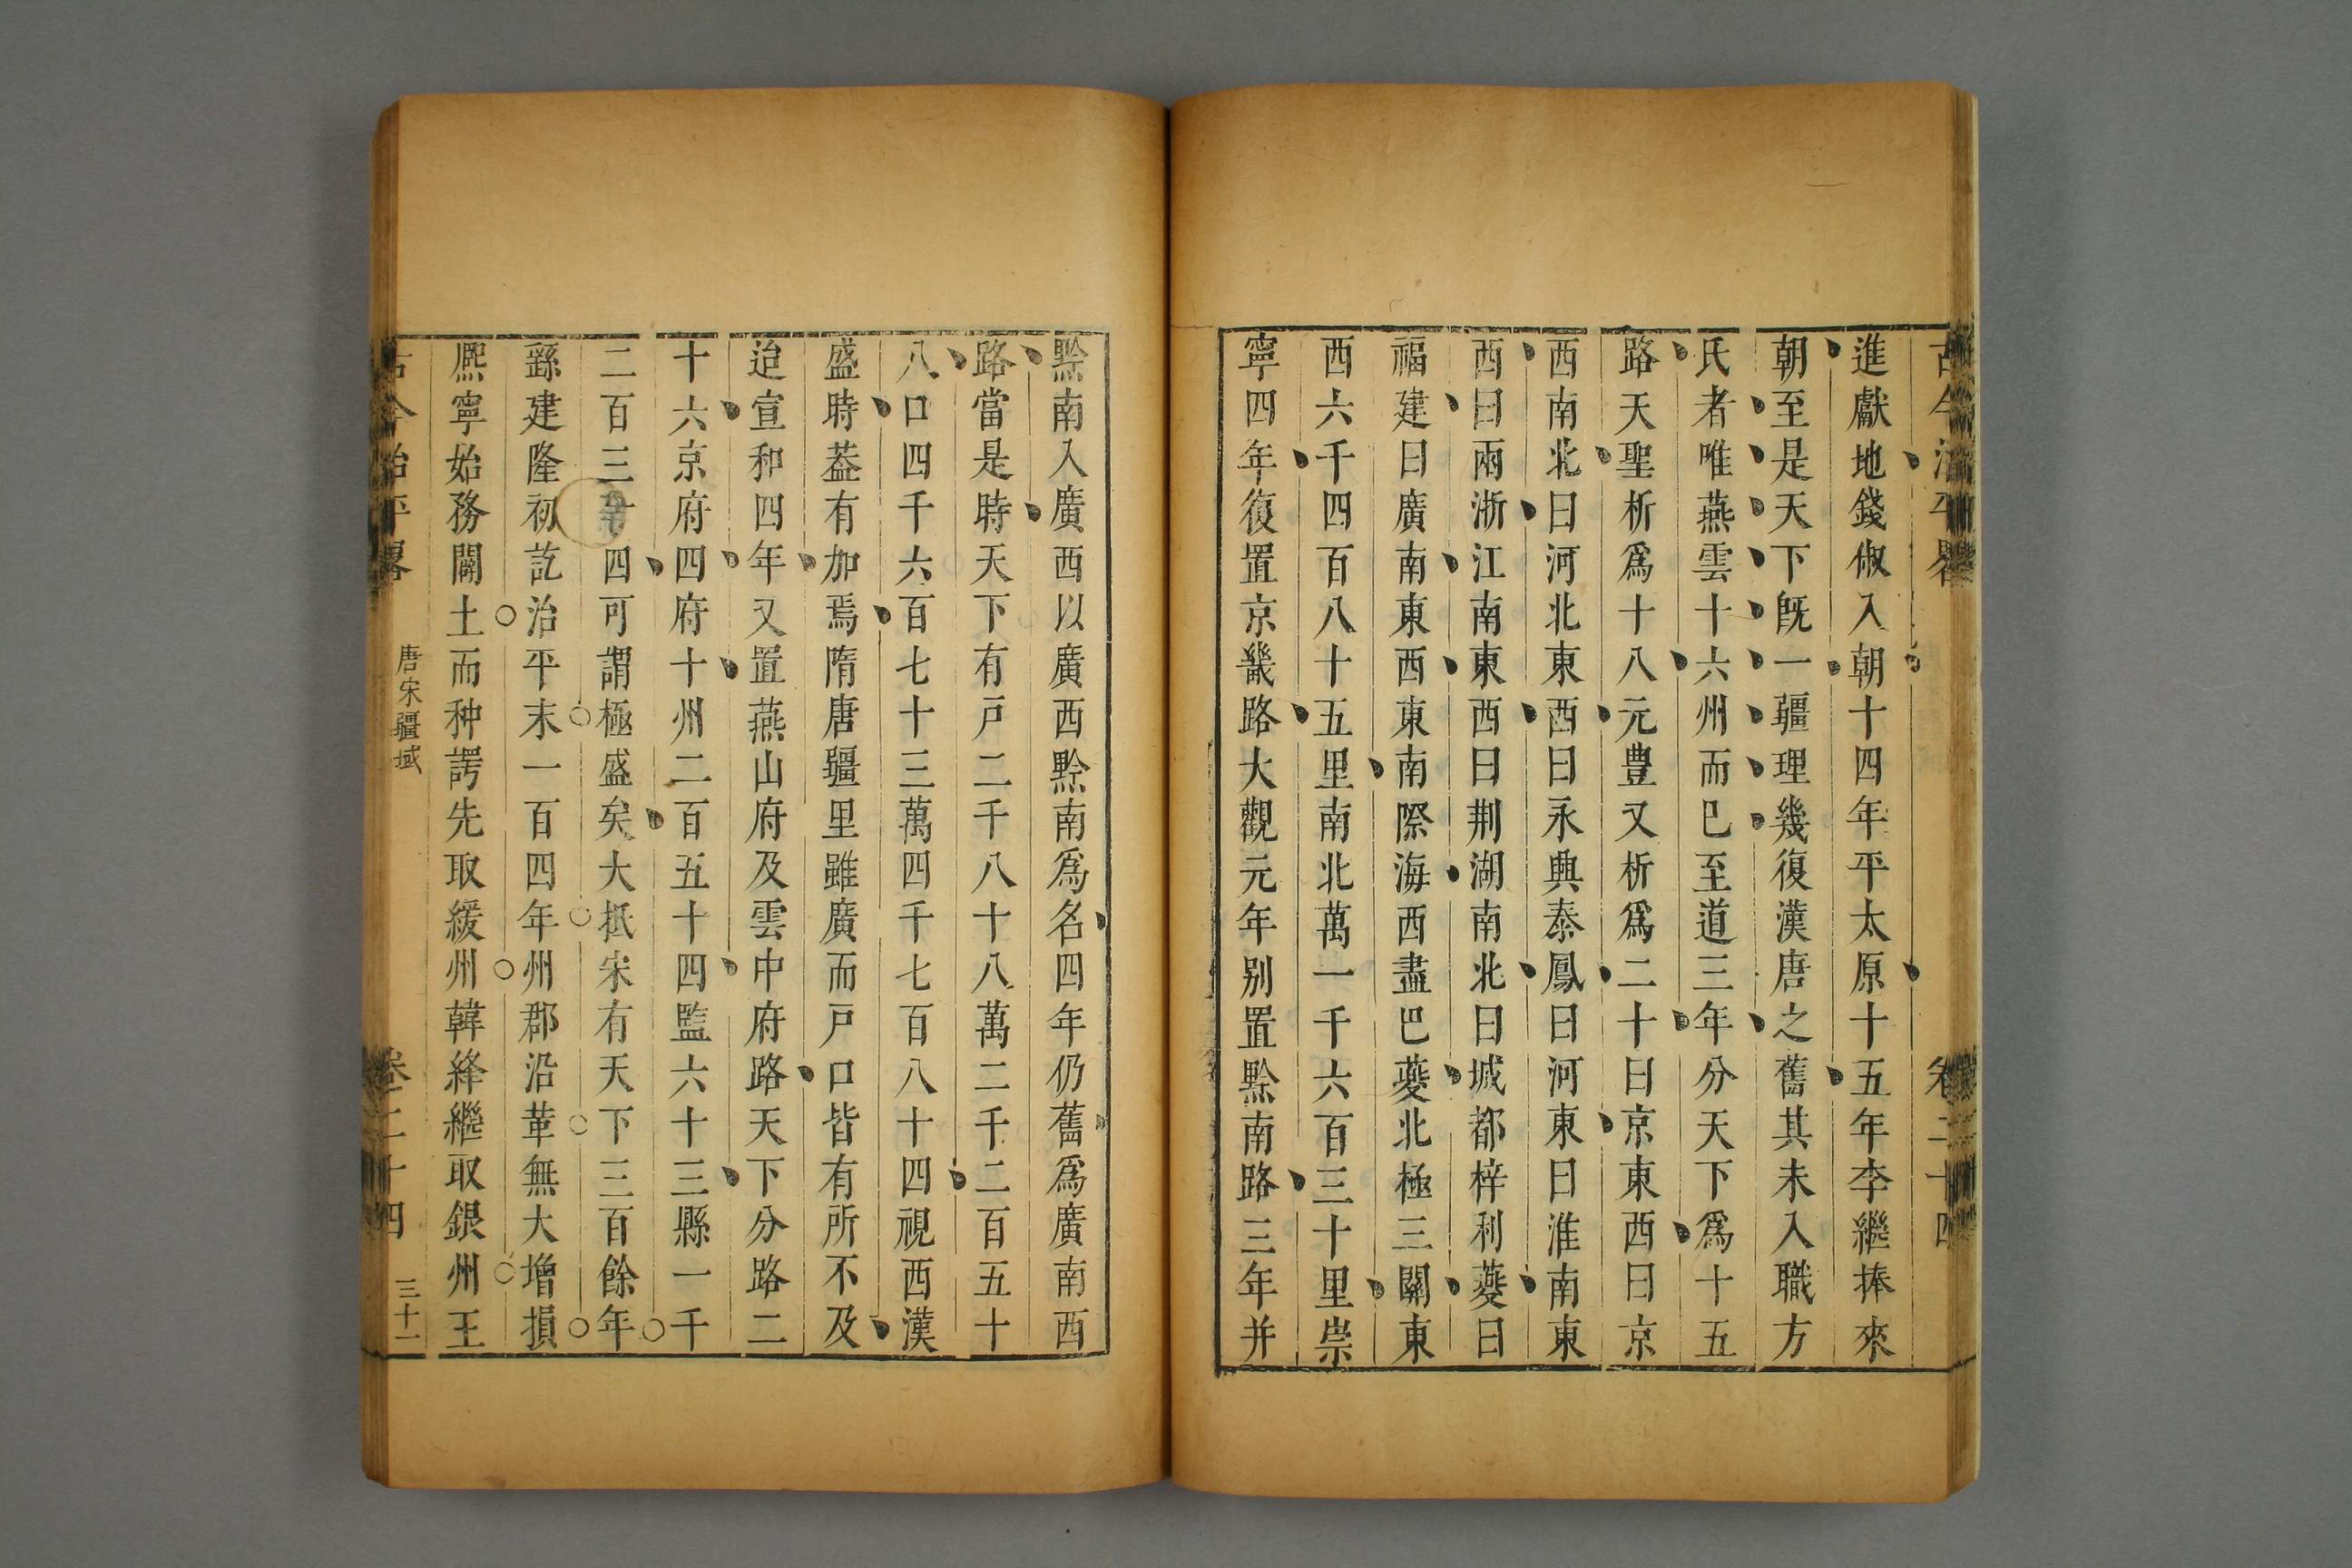 古今治平畧
卷二十四
進獻地錢俶入朝十四年平太原十五年李繼捧來
朝至是天下旣一疆理幾復漢唐之舊其未入職方
氏者唯燕雲十六州而已至道三年分天下爲十五
路天聖析爲十八元豊又析爲二十曰京東西曰京
西南北曰河北東西曰永興秦鳳曰河東曰淮南東
西曰兩浙江南東西曰荆湖南北曰城都梓利夔曰
福建曰廣南東西東南際海西盡巴夔北極三關東
西六千四百八十五里南北萬一千六百三十里崇
寧四年復置京畿路大觀元年别置黔南路三年并
黔南入廣西以廣西黔南爲名四年仍舊爲廣南西
路當是時天下有戸二千八十八萬二千二百五十
八口四千六百七十三萬四千七百八十四視西漢
盛時葢有加焉隋唐疆里雖廣而戸口皆有所不及
迨宣和四年又置燕山府及雲中府路天下分路二
十六京府四府十州二百五十四監六十三縣一千
二百三十四可謂極盛矣大抵宋有天下三百餘年
繇建隆初訖治平末一百四年州郡沿革無大增損
熈寧始務闢土而种諤先取緩州韓絳繼取銀州王
古今治平畧
唐宋疆域
卷二十四
三十一